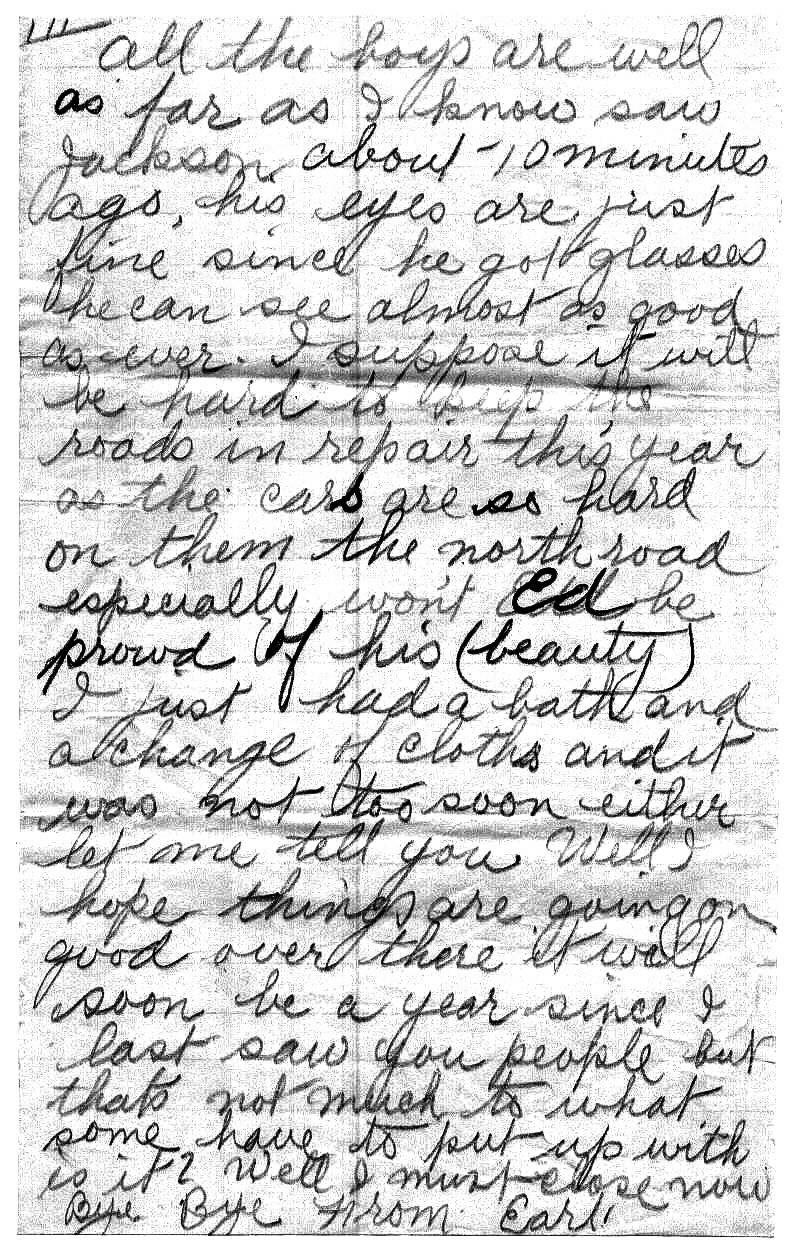 III
all the boys are well
as far as I know saw
Jackson about 10 minutes
ago, his eyes are just
fine since he got glasses
he can see almost as good
as ever. I suppose it will
be hard to keep the
roads in repair this year
as the cars are so hard
on them the north road
especially won't Ed be
proud of his (beauty)
I just had a bath and
a change of cloths and it
was not too soon either
let me tell you Well I
hope things are going on
good over there it will
soon be a year since I
last saw you people but
thats not much to what
some have to put up with
is it? Well I must close now
Bye Bye From Earl!